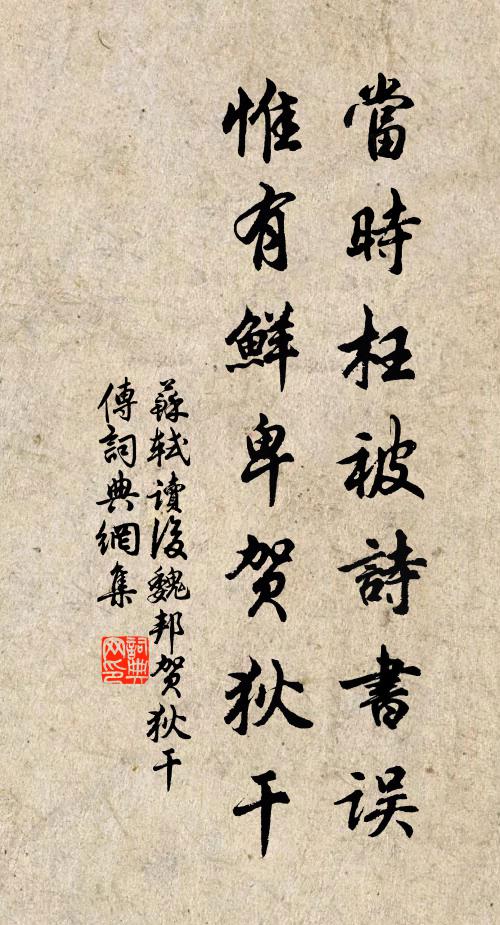 當時枉被詩書误
惟有鮮卑賀狄干
蘇軾讀後魏邦賀狄干
傳詞典網集
詞典
网印